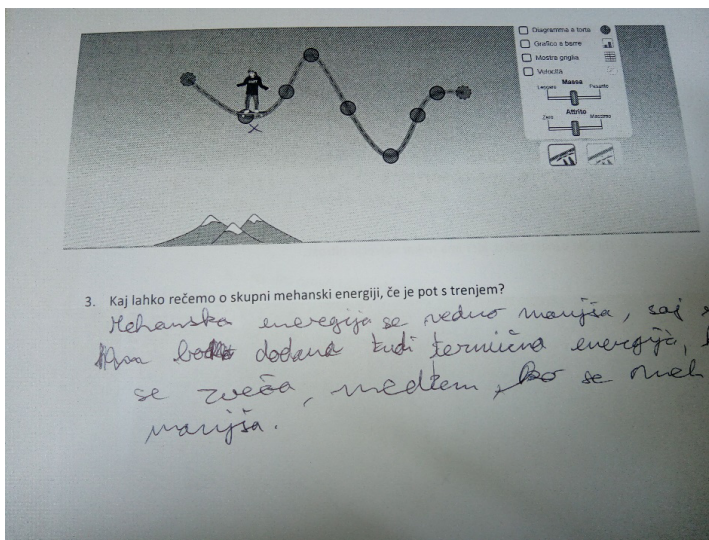 Diagramma a torta
Grafico a barre
Mostra griglia
Velocità
Massa
Leggero Pesante
Attrito
Zero Massimo
X
3. Kaj lahko rečemo o skupni mehanski energiji, če je pot s trenjem?
Mehanska energija se vedno manjša, saj
dodana tudi termična energija,
se zveča, medtem, ko se meh
manjša.